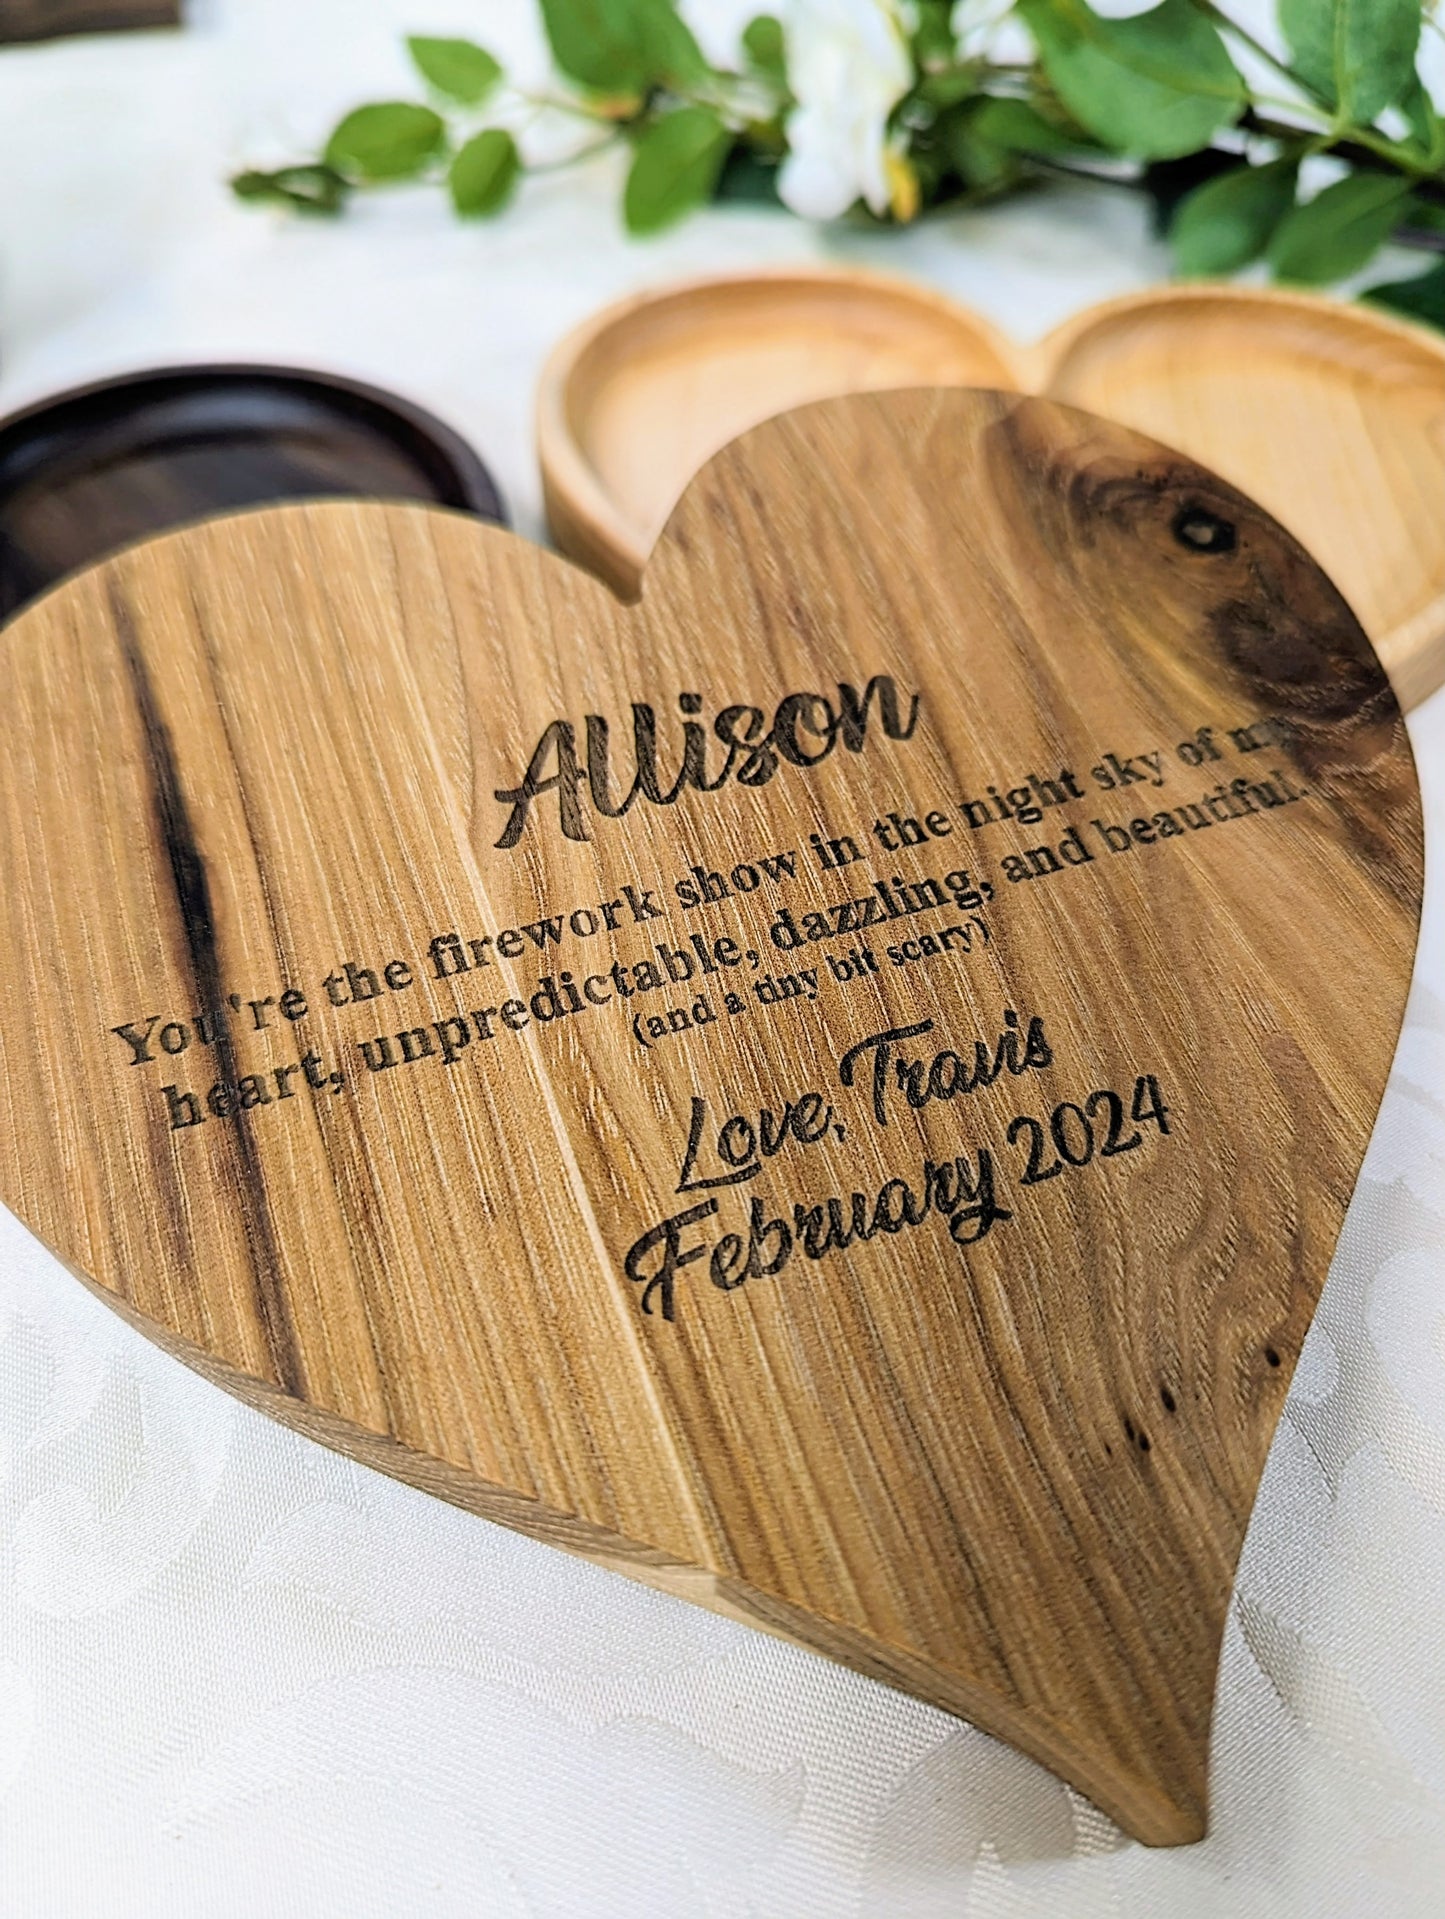 Allison
You're the firework show in the night sky of my
heart, unpredictable, dazzling, and beautiful.
(and a tiny bit scary)
Love, Travis
February 2024